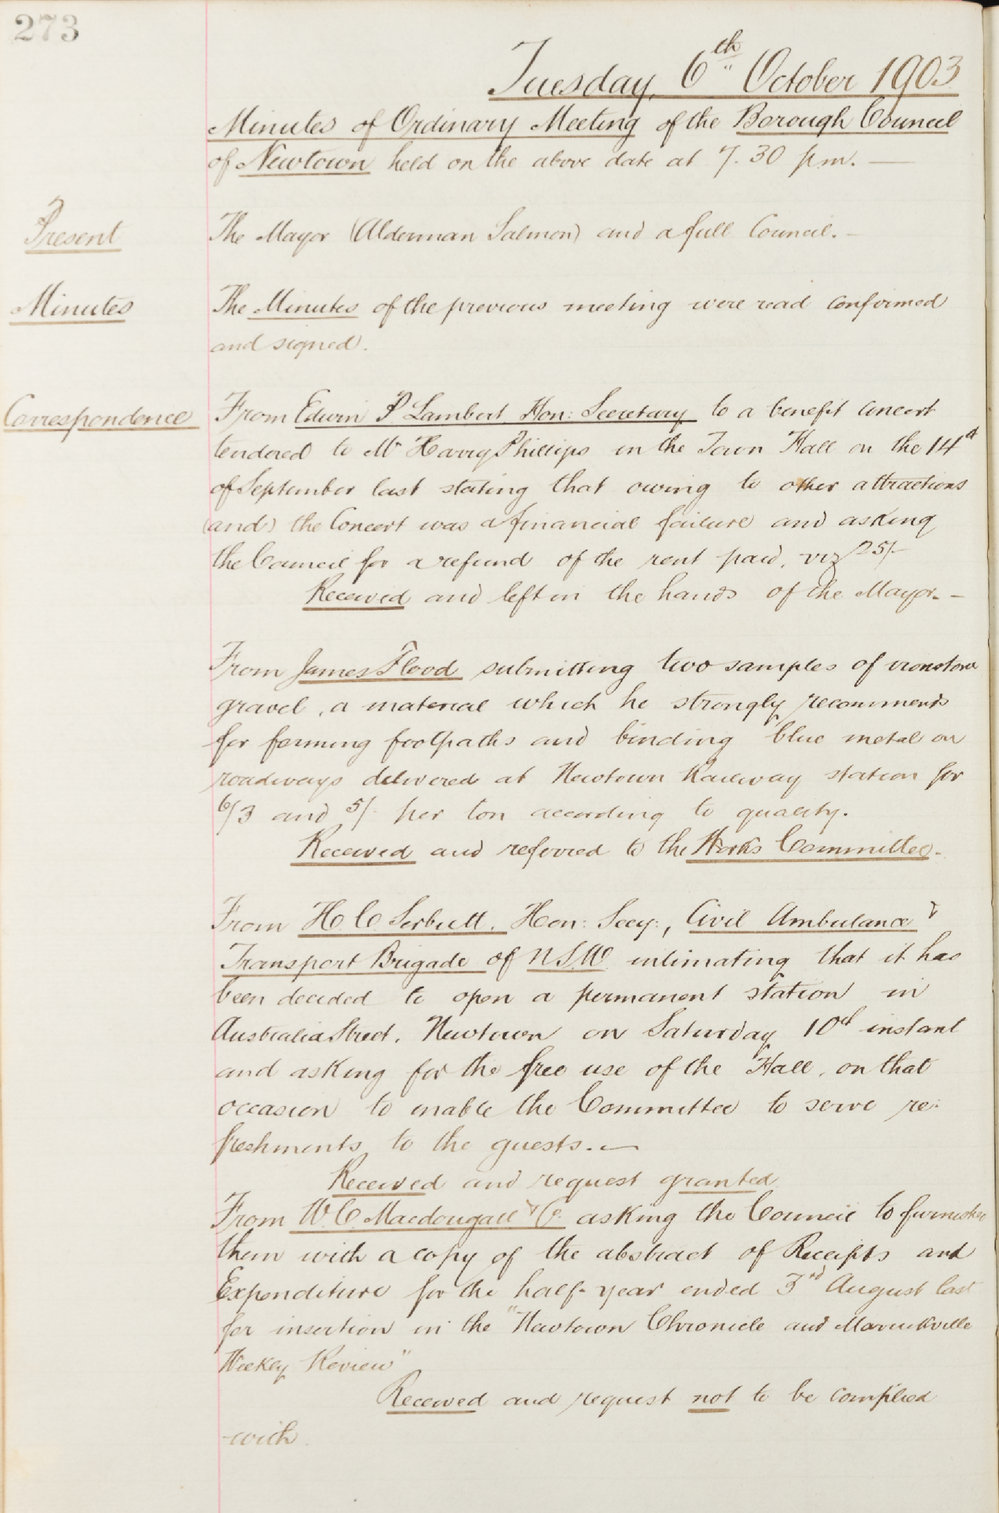 273
Tuesday, 6th October 1903
Minutes of Ordinary Meeting of the Borough Council
of Newtown held on the above date at 7.30 p.m. —
Present
The Mayor (Alderman Salmon) and a full Council. —
Minutes
The Minutes of the previous meeting were read confirmed
and signed.
Correspondence
From Edwin P Lambert Hon: Secretary to a benefit concert
tendered to Mr Harry Phillips in the Town Hall on the 14th
of September last stating that owing to other attractions
(and) the Concert was a financial failure and asking
the Council for a refund of the rent paid, viz 25/-
Received and left in the hands of the Mayor. —
From James Flood submitting two samples of ironstone
gravel, a material which he strongly recommends
for forming footpaths and binding blue metal on
roadways delivered at Newtown Railway station for
6/3 and 5/- per ton according to quality.
Received and referred to the Works Committee. —
From H C Hon: Secy:, Civil Ambulance &
Transport Brigade of NSW intimating that it has
been decided to open a permanent station in
Australia Street, Newtown on Saturday 10th instant
and asking for the free use of the Hall, on that
occasion to enable the Committee to serve re:
freshments to the guests. —
Received and request granted
From W. C. Macdougall & Co. asking the Council to furnish
them with a copy of the abstract of Receipts and
Expenditure for the half-year ended 3rd August last
for insertion in the "Newtown Chronicle and Marrickville
Weekly Review"
Received and request not to be complied
-with.